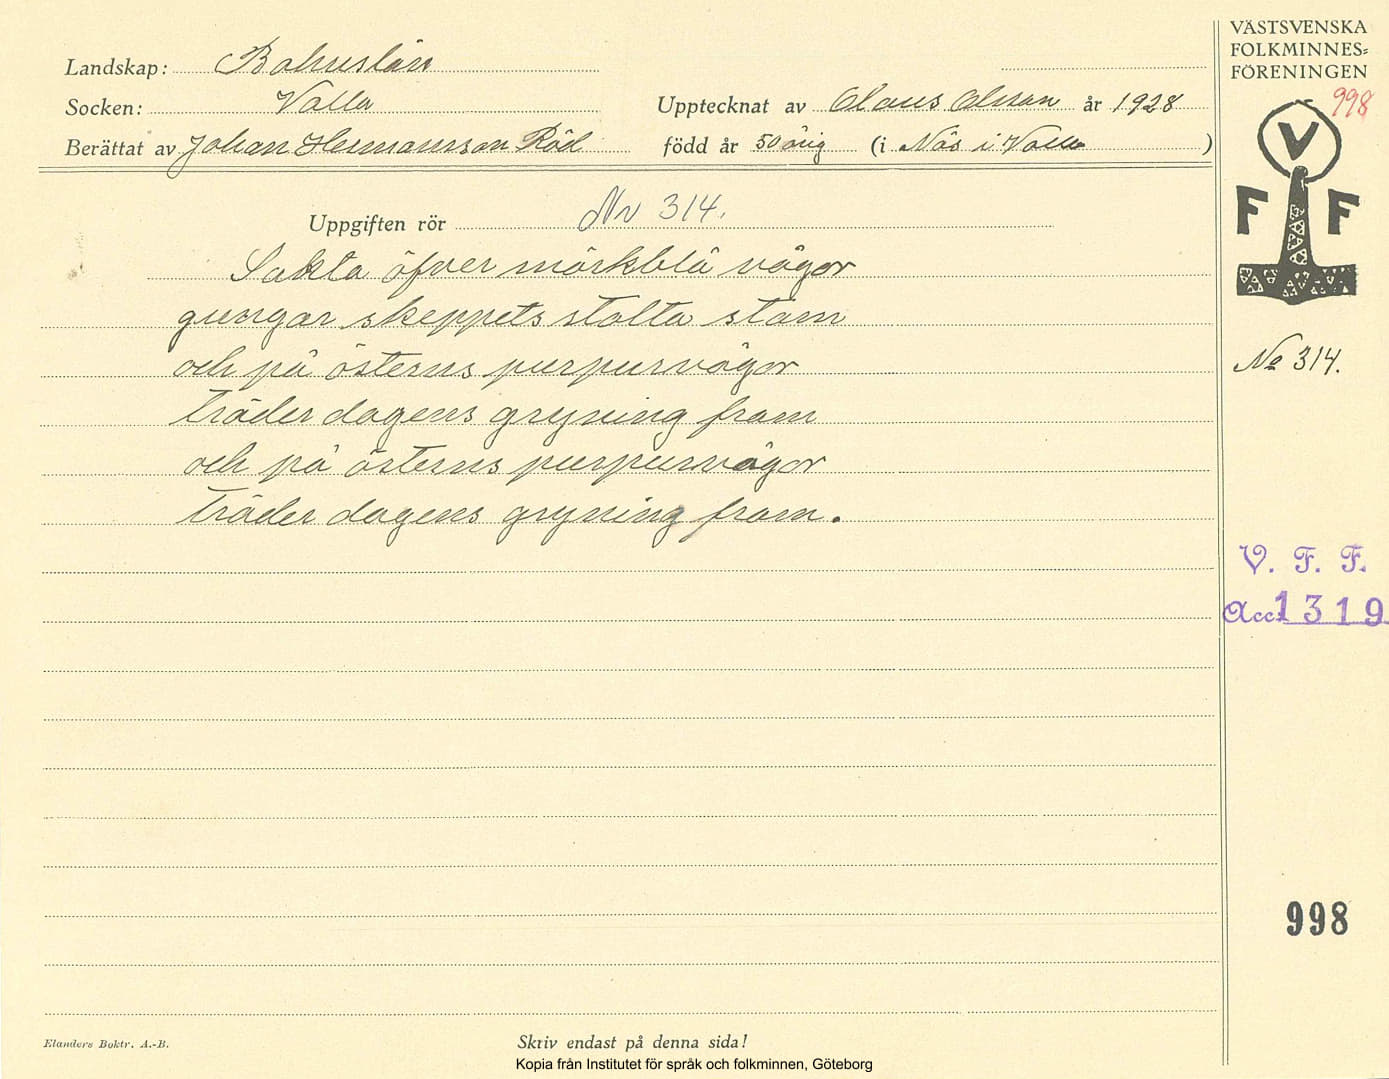 Landskap: Bohuslän
Socken: Valla
Upptecknat av Olaus Olsson år 1928
Berättat av Johan Hermansson Röd
född år 50 årig (i Näs i Valla)
Uppgiften rör Nr 314.
Sakta öfver mörkblå vågor
gungar skeppets stolta stam
och på österns purpurvågor
träder dagens gryning fram
och på österns purpurvågor
träder dagens gryning fram.
VÄSTSVENSKA
FOLKMINNES=
FÖRENINGEN
998
V
F F
No 314.
V. F. F.
Acc. 1319
998
Elanders Boktr. A.-B.
Skriv endast på denna sida!
Kopia från Institutet för språk och folkminnen, Göteborg